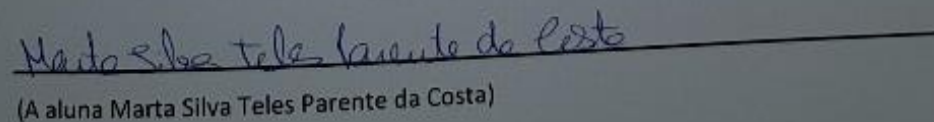 Marta Silva Teles Parente da Costa
(A aluna Marta Silva Teles Parente da Costa)